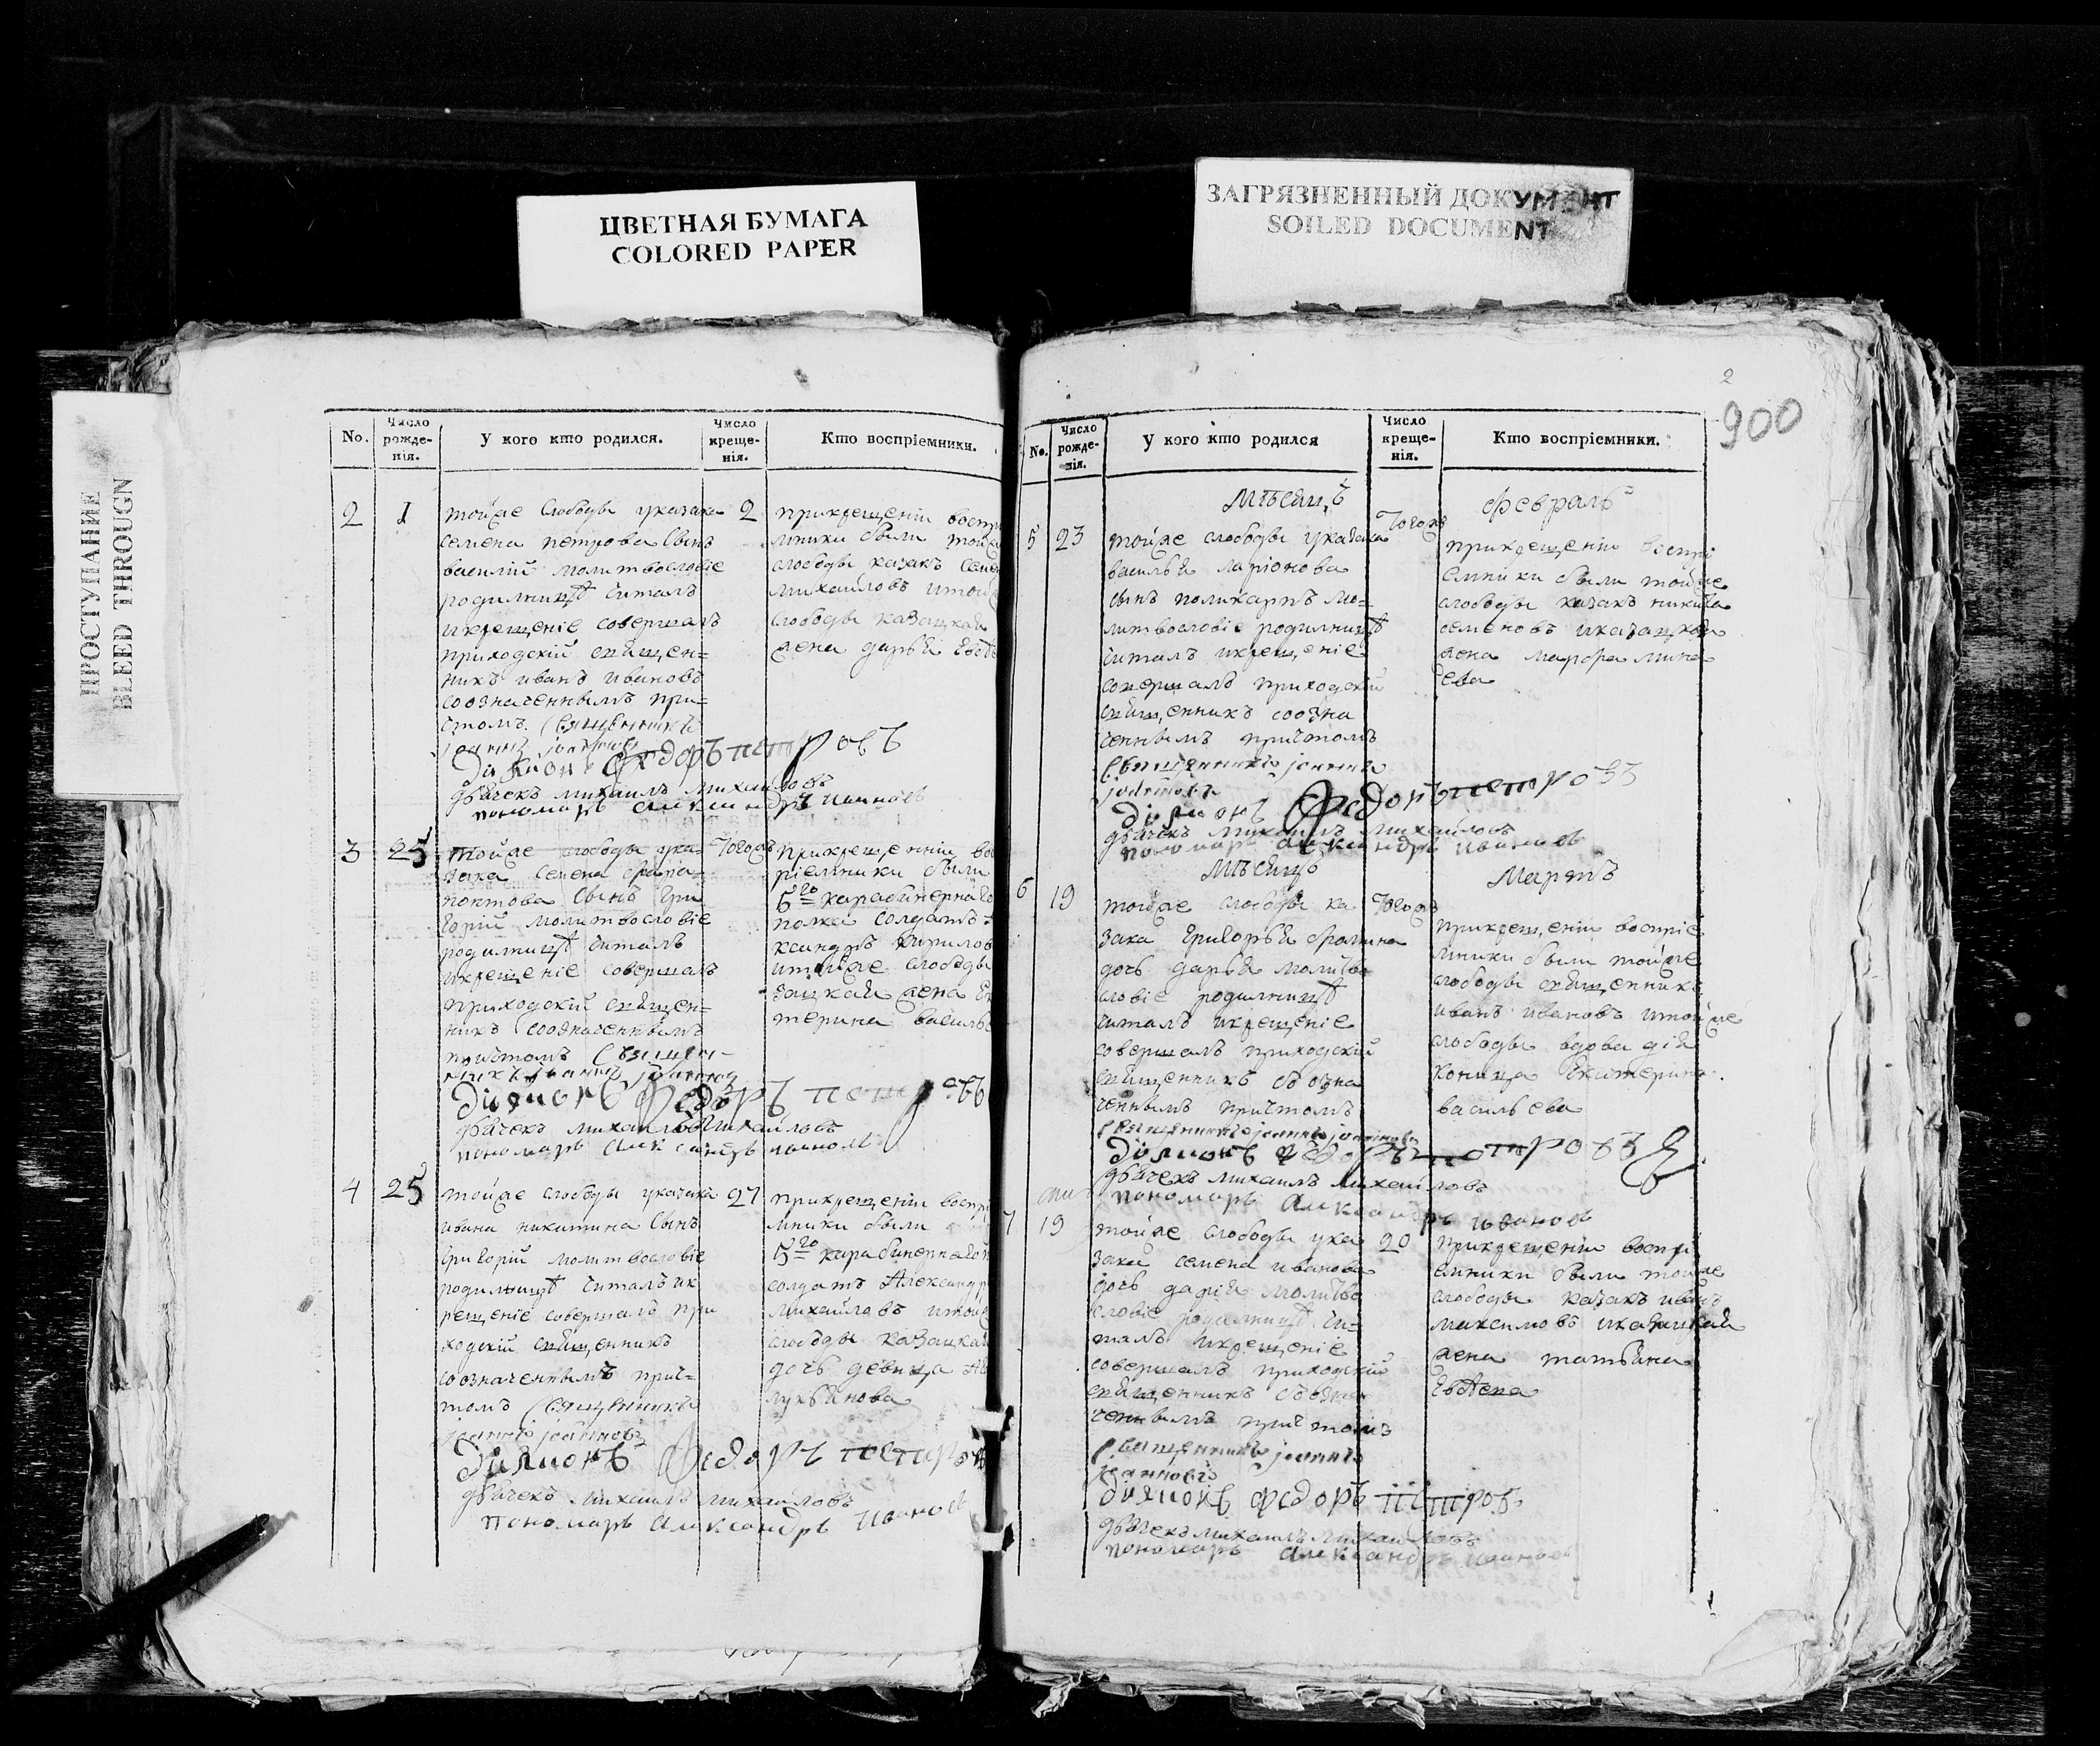 ЦВЕТНАЯ БУМАГА
COLORED PAPER
ЗАГРЯЗНЕННЫЙ ДОКУМЕНТ
SOILED DOCUMENT
ПРОСТУПАНИЕ
BLEED THROUGN
No.
Число рожде-нія.
У кого кто родился.
Число креще-нія.
Кто воспріемники.
2 1
тойже слободы у казака
семена петрова сынъ
василій молитвословіе
родилницѣ читалъ
икрещеніе совершалъ
приходскій свящ҃ен=
никъ иванъ ивановъ
соозначеннымъ при=
чтомъ. Священникъ
Діяконъ Федоръ петровъ
дьячекъ михаилъ михаиловъ
пономарь александръ ивановъ
2
прикрещеніи воспрі
мники были тойже
слободы казакъ
михайловъ итой
слободы казацкая
жена дарья
3 25
тойже слободы ука-
зака семена
сынъ гри
горій молитвословіе
родилницѣ читалъ
икрещеніе совершалъ
приходскій священ=
никъ соозначеннымъ
причтомъ Священ-
никъ
Діяконъ Федоръ петровъ
дьячекъ михаилъ михайловъ
пономарь александръ ивановъ
Тогожъ
прикрещеніи во
ріемники были
5го карабинернаго
полка солдатъ
ксандръ кирилов
итойже слободы
зацкая жена Ек
терина василь
4 25
тойже слободы указака
ивана никитина сынъ
григорій молитвословіе
родилницѣ читалъ ик
рещеніе совершалъ при
ходскій священникъ
соозначеннымъ прич=
томъ Священникъ
іоаннъ іоанновъ
Діяконъ Федоръ петров
дьячекъ михаилъ михаиловъ
пономарь александръ ивановъ
27
прикрещеніи воспрі
мники были
5го карабинернаго
солдатъ Александр
михайловъ итой
слободы казацкая
дочь девица
лукьянова
2
900
No.
Число рожде-нія.
У кого кто родился
Число креще-нія.
Кто воспріемники.
Мѣсяцъ февраль
5 23
тойже слободы указака
василья ларіонова
сынъ поликарпъ мо=
литвословіе родилницѣ
читалъ икрещеніе
совершалъ приходскій
священникъ соозна
ченнымъ причтомъ
Священникъ іоаннъ
іоанновъ
Діяконъ Федоръ петровъ
дьячекъ михаилъ михайловъ
пономарь александръ ивановъ
Тогожъ
прикрещеніи воспрі
емники были тойже
слободы казакъ никита
семеновъ иказацкая
жена марфа мина
ева
Мѣсяцъ Мартъ
6 19
тойже слободы ка
зака григорья фомина
дочь дарья молитво
словіе родилницѣ
читалъ икрещеніе
совершалъ приходскій
священникъ соозна
ченнымъ причтомъ
Священникъ іоаннъ іоанновъ
Діяконъ Федоръ петровъ
дьячекъ михаилъ михайловъ
пономарь Александръ ивановъ
Тогожъ
прикрещеніи воспріе
мники были тойже
слободы священникъ
иванъ ивановъ итойже
слободы вдова дія
коница Екатерина
васильева
7 19
тойже слободы ука
зака семена иванова
дочь дарія молитво
словіе родилницѣ чи=
талъ икрещеніе
совершалъ приходскій
священникъ соозна
ченнымъ причтомъ
Священникъ іоаннъ
іоанновъ
Діяконъ Федоръ петровъ
дьячекъ михаилъ михаиловъ
пономарь александръ ивановъ
20
прикрещеніи воспрі
емники были тойже
слободы казакъ иванъ
максимовъ иказацкая
жена татьяна